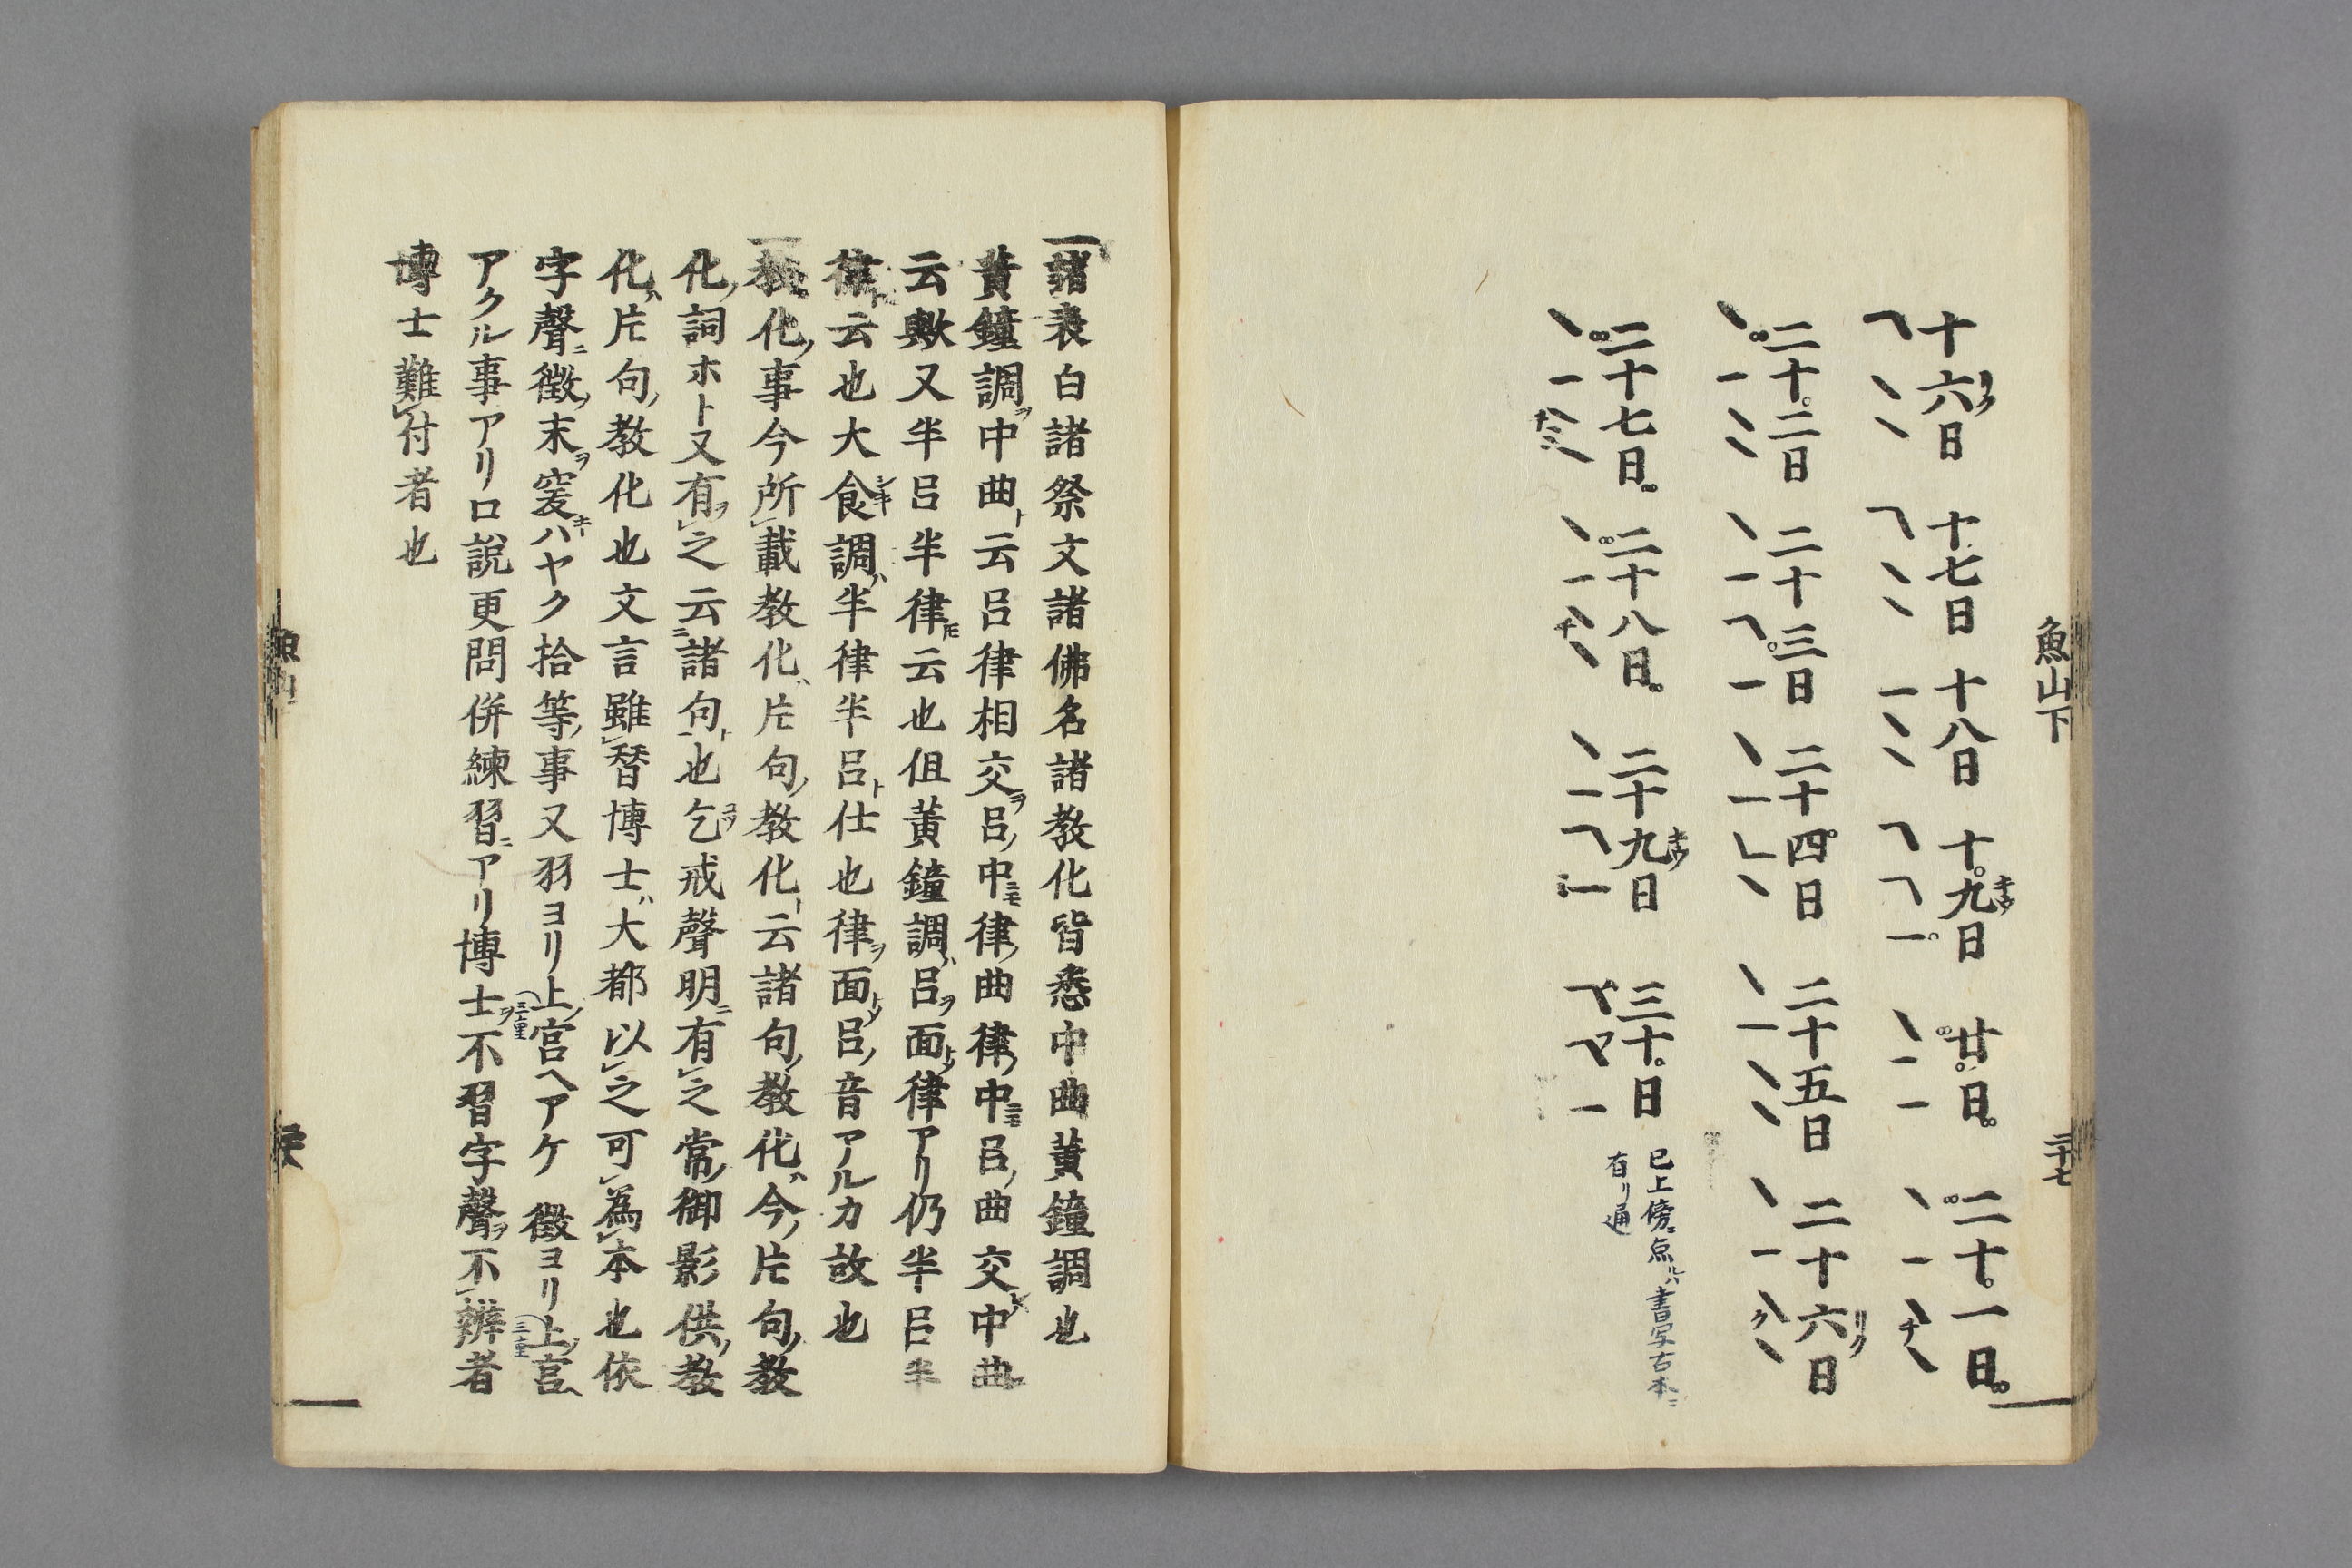 魚山下
二十七
十六日　十七日　十八日　十九日　廿日　二十一日
二十二日　二十三日　二十四日　二十五日　二十六日
二十七日　二十八日　二十九日　三十日
已上傍ニ点ルハ書写古本ニ
有リ通
一諸表白諸祭文諸佛名諸教化皆悉中曲黄鐘調也
黄鐘調ヲ中曲ト云呂律相交ヲ呂ノ中ニモ律ノ曲律ノ中ニモ呂ノ曲交ル中曲
云歟又半呂半律トモ云也但黄鐘調ハ呂ヲ面トメ律アリ仍半呂半
律ト云也大食調ハ半律半呂ト仕也律ヲ面トメ呂ノ音アルカ故也
一教化ノ事今所レ載教化ハ片句ノ教化ト云諸句ノ教化ハ今ノ片句ノ教
化ノ詞ホト又有ヲレ之云ニ諸句ト一也乞戒聲明ニ有レ之常ノ御影供ノ教
化ハ片句ノ教化也文言雖レ替博士ハ大都以レ之可レ為レ本也依
字聲ニ徴ノ末ヲ窄キハヤク拾等ノ事又羽ヨリ上ノ宮ヘアケ　徴ヨリ上ノ宮ヘ
三重
三重
アクル事アリ口説更問併練習ニアリ博士ヲ不習字聲ヲ不レ辨者
博士難レ付者也